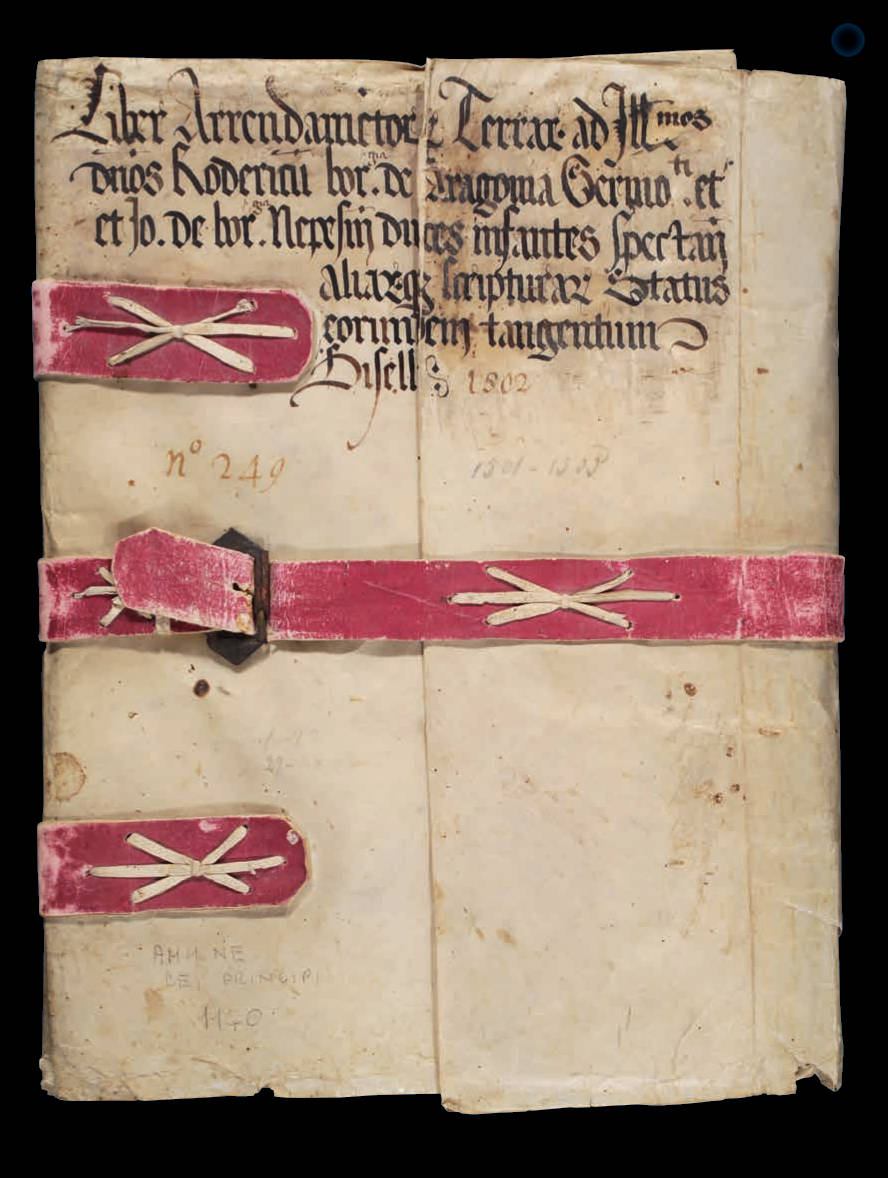 Liber Arrendamētorꝝ Terrarꝝ ad Illmos
dños Rodericū borgia. de Aragonia Sermoti. et
et Jo. de borgia. Nepesiñ duces infantes spectañ
Aliarꝝqꝫ scripturarꝝ Status
eorundem tangentium
1502
nº 249
1501 - 1503
AMM NE
DEI PRINCIPI
1140